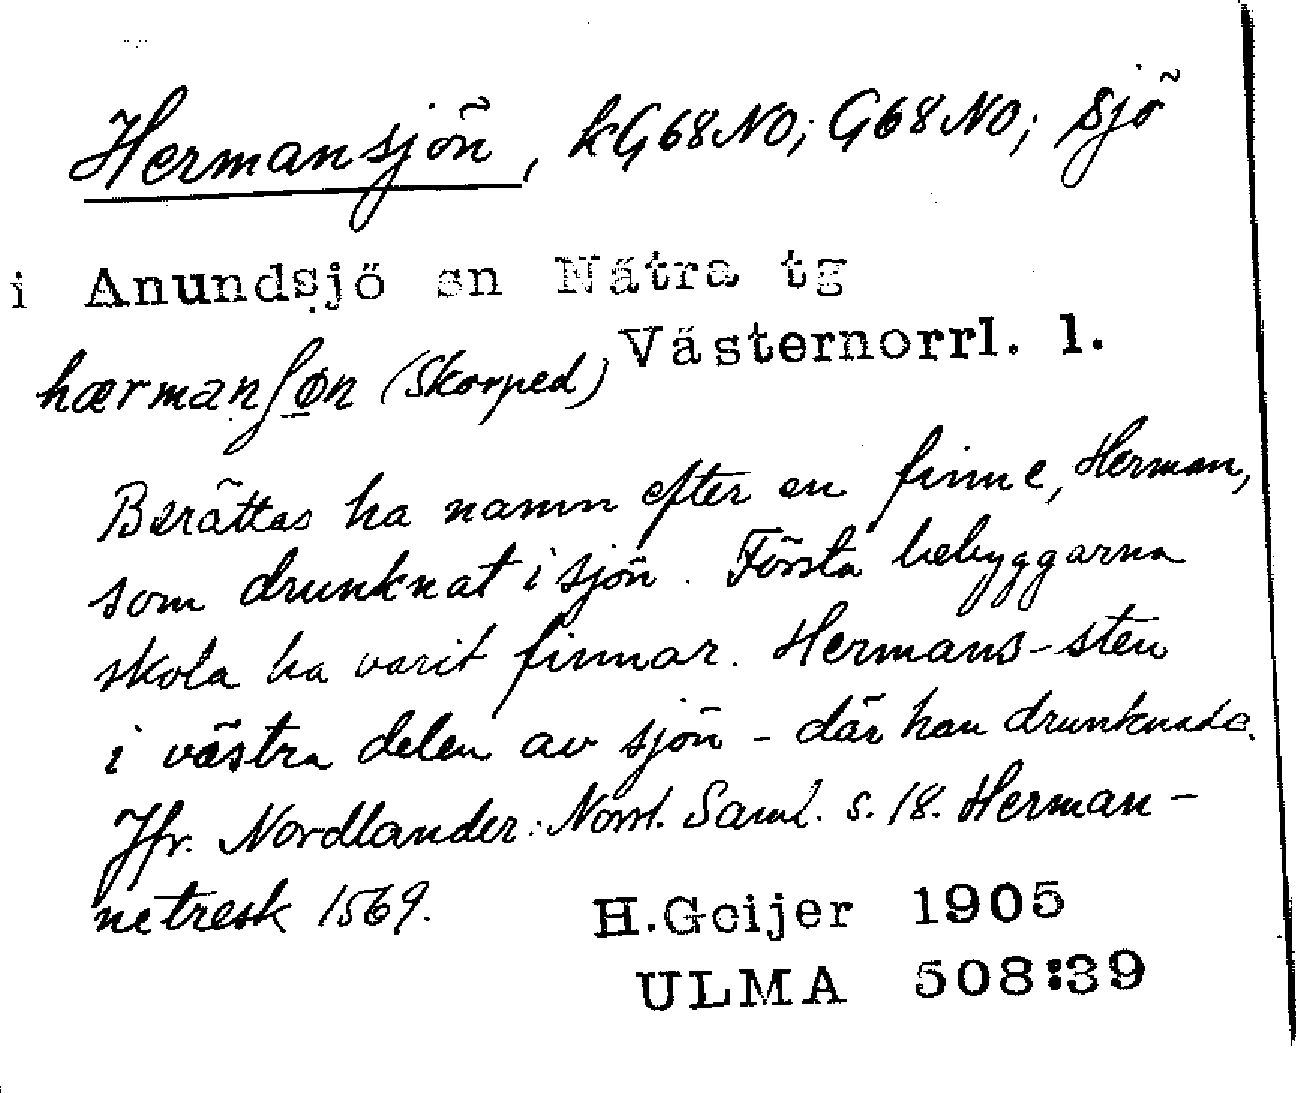 Hermansjön, kG68NO; G68NO; sjö
i Anundsjö sn Nätra tg
Västernorrl. l.
hærmanʃøn (Skorped)
Berättas ha namn efter en finne, Herman,
som drunknat i sjön. Första bebyggarna
skola ha varit finnar. Hermans-sten
i västra delen av sjön - där han drunknade.
Jfr. Nordlander: Norrl. Saml. s. 18. Herman-
netresk 1569.
H.Geijer 1905
ULMA 508:39